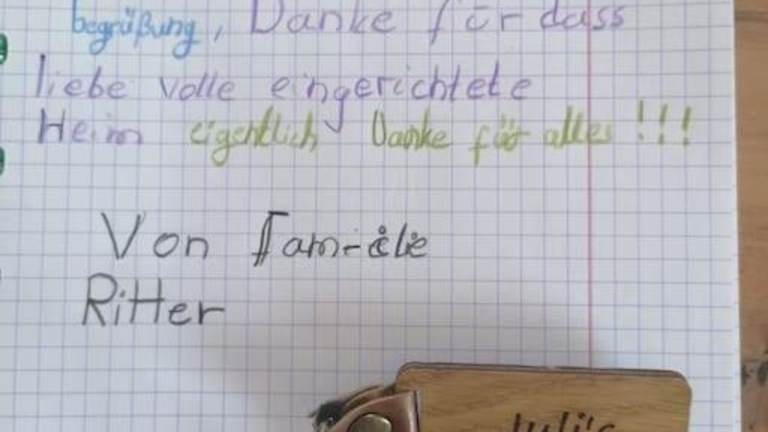 begrüßung, Danke für dass
liebe volle eingerichtete
Heim eigentlich Danke für alles !!!
Von Fam-ilie
Ritter
Juli's